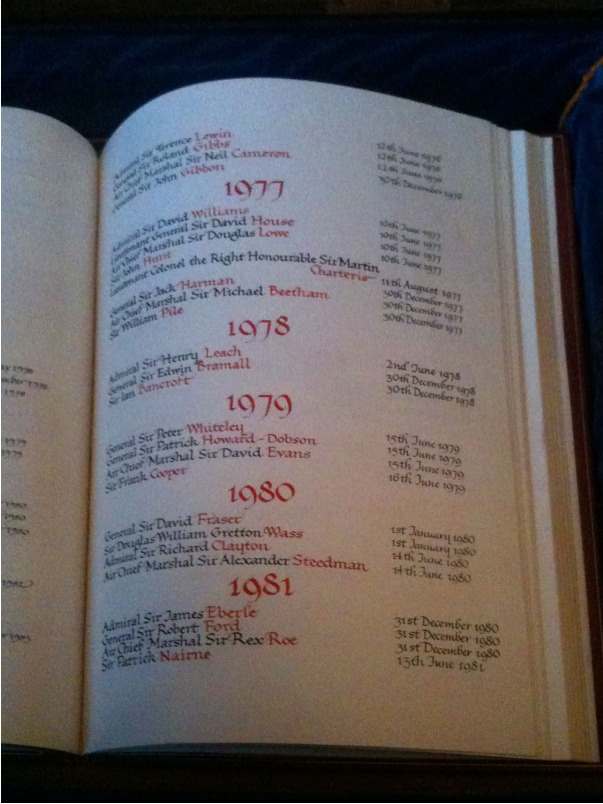 1976
1976
1976
1979
1979
1980
1980
1980
1982
1983
Admiral Sir Terence Lewin 12th June 1976
General Sir Roland Gibbs 12th June 1976
Air Chief Marshal Sir Neil Cameron 12th June 1976
General Sir John Gibbon 30th December 1976
1977
Admiral Sir David Williams 10th June 1977
Lieutenant General Sir David House 10th June 1977
Air Chief Marshal Sir Douglas Lowe 10th June 1977
Sir John Hunt 10th June 1977
Lieutenant Colonel the Right Honourable Sir Martin
Charteris 11th August 1977
General Sir Jack Harman 30th December 1977
Air Chief Marshal Sir Michael Beetham 30th December 1977
Sir William Pile 30th December 1977
1978
Admiral Sir Henry Leach 2nd June 1978
General Sir Edwin Bramall 30th December 1978
Sir Ian Bancroft 30th December 1978
1979
General Sir Peter Whiteley 15th June 1979
General Sir Patrick Howard-Dobson 15th June 1979
Air Chief Marshal Sir David Evans 15th June 1979
Sir Frank Cooper 16th June 1979
1980
General Sir David Fraser 1st January 1980
Sir Douglas William Gretton Wass 1st January 1980
Admiral Sir Richard Clayton 14th June 1980
Air Chief Marshal Sir Alexander Steedman 14th June 1980
1981
Admiral Sir James Eberle 31st December 1980
General Sir Robert Ford 31st December 1980
Air Chief Marshal Sir Rex Roe 31st December 1980
Sir Patrick Nairne 13th June 1981